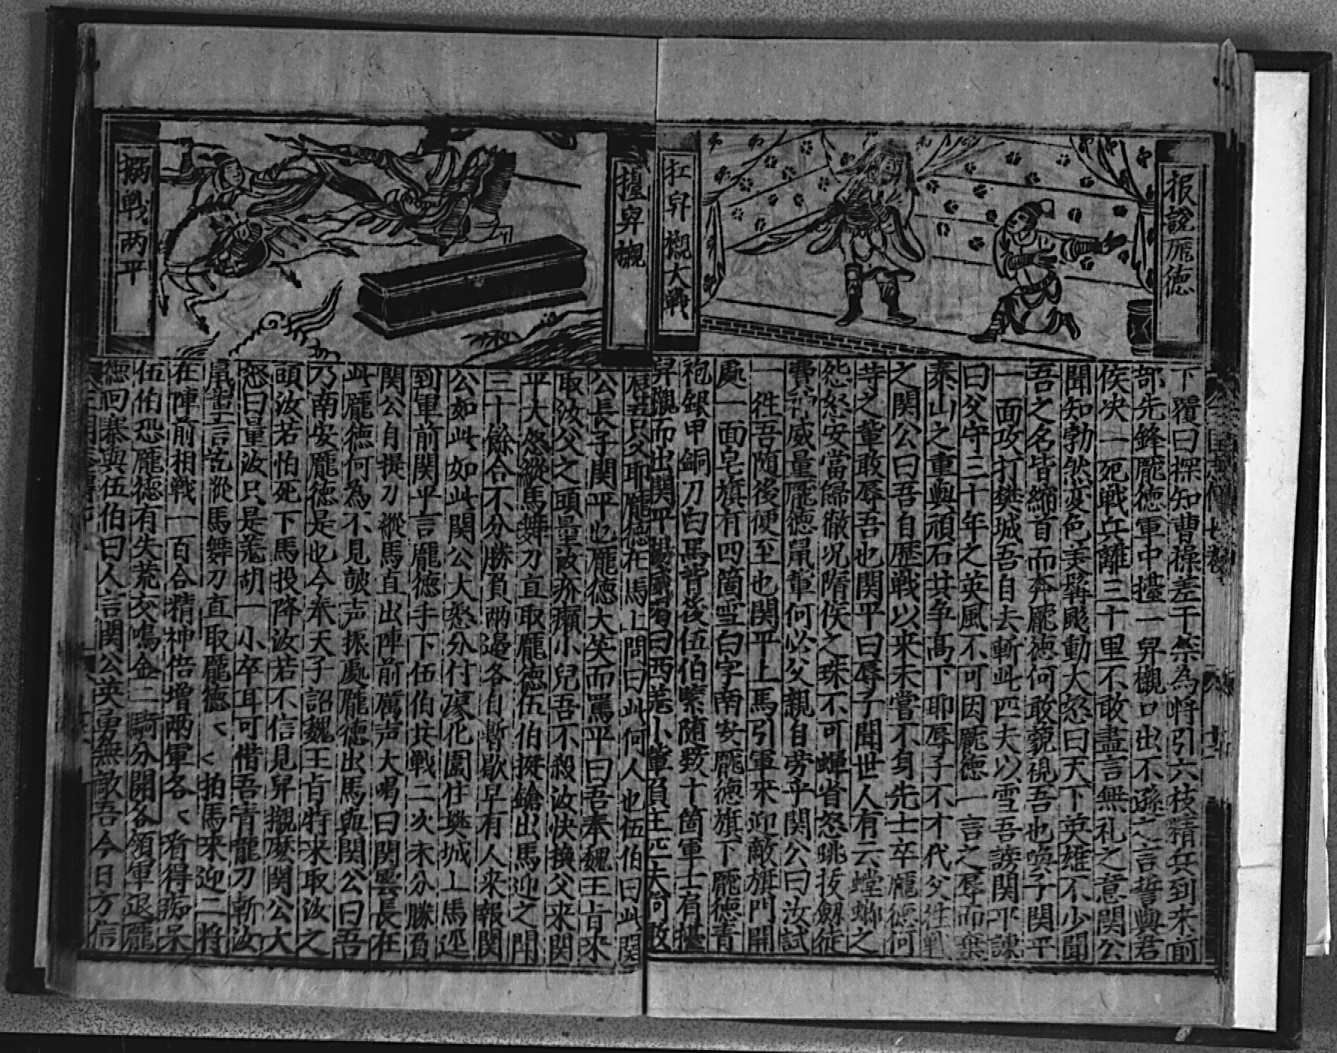 报說龐德
扛舁櫬大戰
下覆曰探知曹操差于禁為將引六枝精兵到來前
部先鋒龐德軍中擡一舁櫬口出不遜之言誓與君
侯决一死戰兵離三十里不敢盡言無礼之意関公
聞知勃然变色美髯飃動大怒曰天下英雄不少聞
吾之名皆縮首而奔龐德何敢藐視吾也喚子関平
一面攻打樊城吾自去斬此匹夫以雪吾謗関平諫
曰父守三十年之英風不可因龐德一言之辱而棄
泰山之重與頑石共争高下耶辱子不才代父徃戰
之関公曰吾自歷戰以来未嘗不身先士卒龐德何
等之軰敢辱吾也関平曰辱子聞世人有云螳螂之
怨怒安當歸徹况隋侯之珠不可蟬省怒跳拔劔徒
費神威量龐德鼠軰何必父親自劳乎関公曰汝試
一徃吾随後便至也関平上馬引軍来迎敵旗門開
處一面皂旗有四箇雪白字南安龐德旗下龐德青
袍銀甲銅刀白馬背後伍伯緊随数十箇軍士肩擡
舁櫬而出関平罵曰西羌小軰負主匹夫何敢
擡舁櫬
擲戰两平
龐德在馬上問曰此何人也伍伯曰此関
公長子関平也龐德大笑而罵平曰吾奉魏王旨来
取汝父之頭量汝疥癩小兒吾不殺汝快換父来関
平大怒縱馬舞刀直取龐德伍伯挺鎗出馬迎之閗
三十餘合不分勝負兩邊各自暫歇早有人来報関
公如此如此関公大怒分付廖化圍住樊城上馬逕
到軍前関平言龐德手下伍伯共戰二次未分勝負
関公自提刀縱馬直出陣前厲声大喝曰関雲長在
此龐德何為不見皷声振處龐德出馬與関公曰吾
乃南安龐德是也今奉天子詔魏王旨特来取汝之
頭汝若怕死下馬投降汝若不信見舁櫬麽関公大
怒曰量汝只是羗胡一小卒耳可惜吾青龍刀斬汝
鼠軰言訖縱馬舞刀直取龐德く拍馬来迎二將
在陣前相戰一百合精神倍增兩軍各く看得痴呆
伍伯恐龐德有失荒交鳴金二騎分開各領軍退龐
德回寨與伍伯曰人言関公英勇無敵吾今日方信